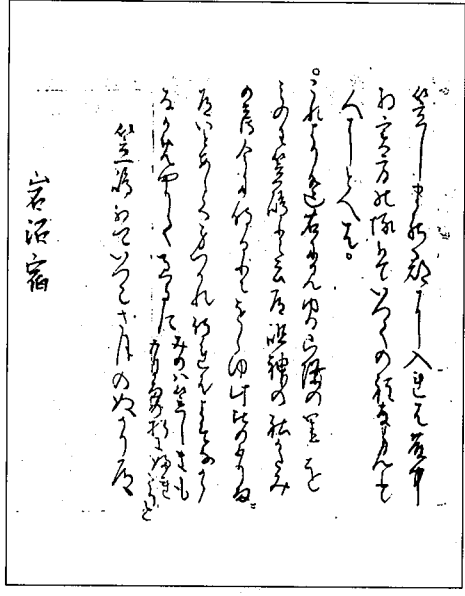 笠しまの郡に入れは藤中
将実方の塚はいつくの程ならんと
人にとへは
これより遥右に見ゆる山際の里を
みのわ笠嶋と云道祖神の社かたみ
の薄今に侍るとをしゆ此比の五月雨に
道いとあしく身つかれ侍れはよそなから
なかめやりて過るにみのわ笠しまも
五月雨の折にふれたりと
笠嶋はいつこさ月のぬかり道
岩沼宿